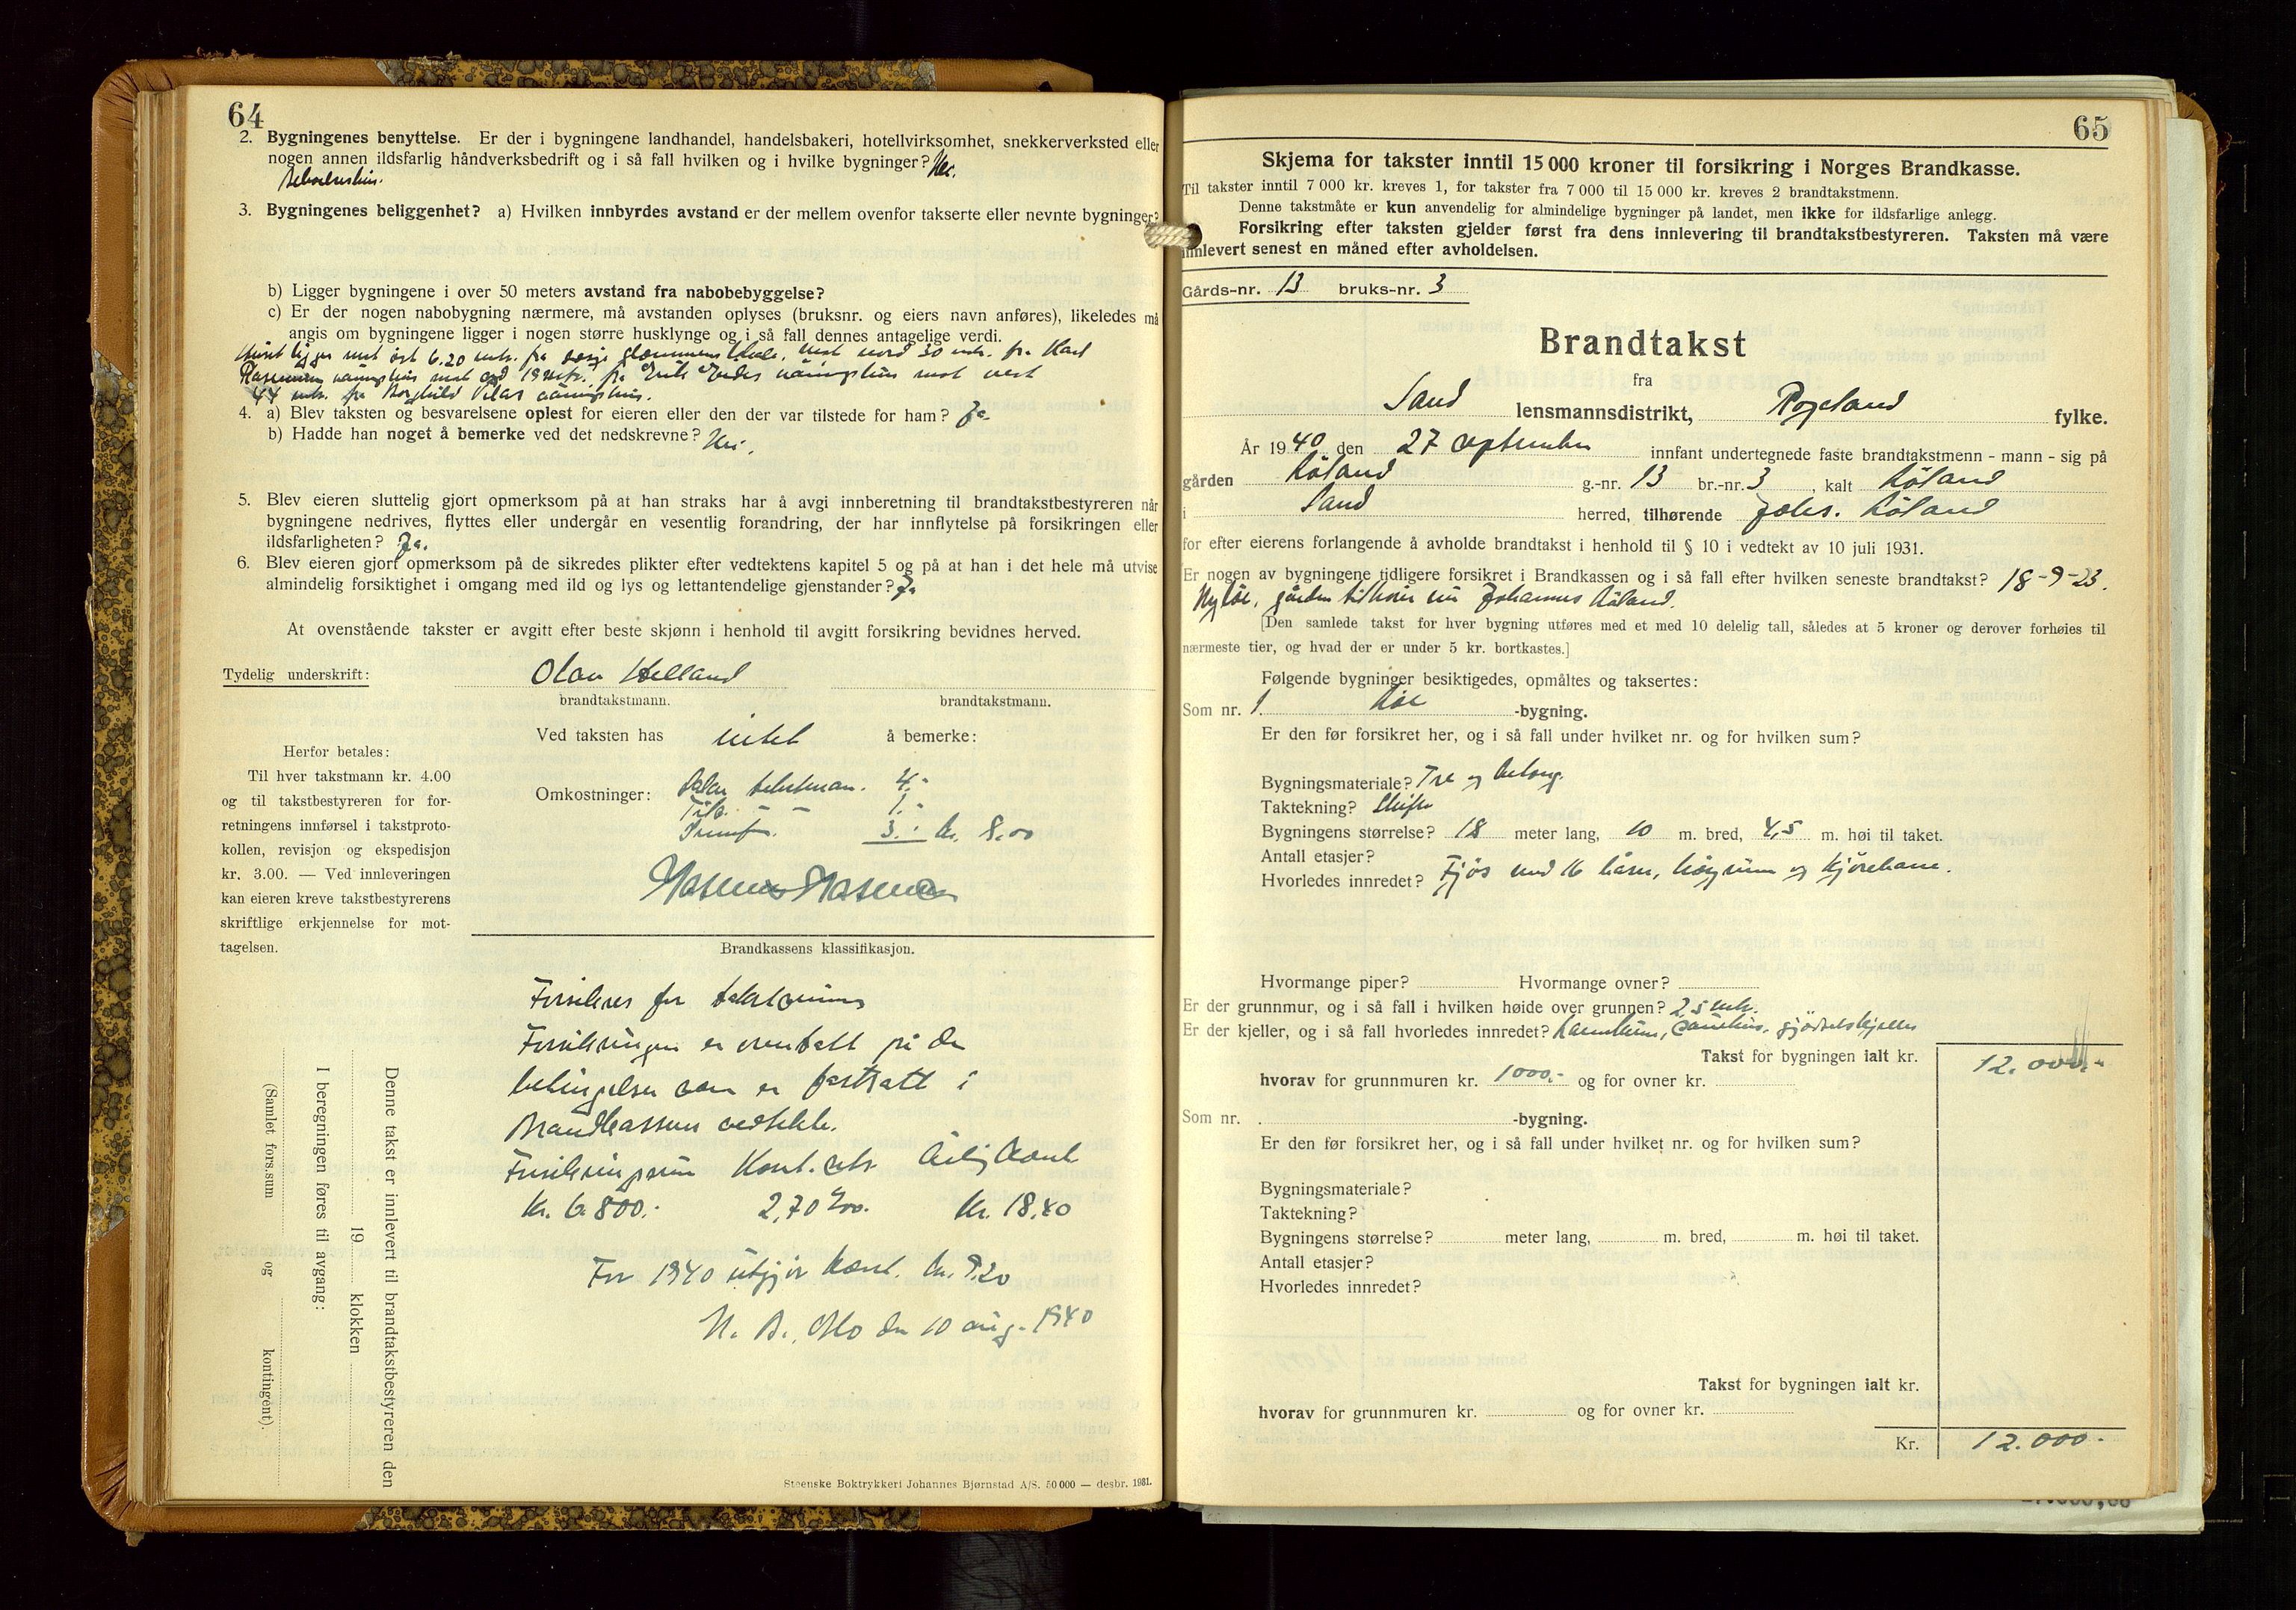 64
2. Bygningenes benyttelse. Er der i bygningene landhandel, handelsbakeri, hotellvirksomhet, snekkerverksted eller
nogen annen ildsfarlig håndverksbedrift og i så fall hvilken og i hvilke bygninger? Nei.
Beboelseshus.
3. Bygningenes beliggenhet? a) Hvilken innbyrdes avstand er der mellem ovenfor takserte eller nevnte bygninger?
b) Ligger bygningene i over 50 meters avstand fra nabobebyggelse?
c) Er der nogen nabobygning nærmere, må avstanden oplyses (bruksnr. og eiers navn anføres), likeledes må
angis om bygningene ligger i nogen større husklynge og i så fall dennes antagelige verdi.
Huset ligger mot øst 6.20 mtr. fra mot nord 30 mtr. fra
våningshus mot syd 19 mtr. fra våningshus mot vest
44 mtr. fra Borghild våningshus.
4. a) Blev taksten og besvarelsene oplest for eieren eller den der var tilstede for ham? Ja
b) Hadde han noget å bemerke ved det nedskrevne? Nei.
5. Blev eieren sluttelig gjort opmerksom på at han straks har å avgi innberetning til brandtakstbestyreren når
bygningene nedrives, flyttes eller undergår en vesentlig forandring, der har innflytelse på forsikringen eller
ildsfarligheten? Ja.
6. Blev eieren gjort opmerksom på de sikredes plikter efter vedtektens kapitel 5 og på at han i det hele må utvise
almindelig forsiktighet i omgang med ild og lys og lettantendelige gjenstander? Ja
At ovenstående takster er avgitt efter beste skjønn i henhold til avgitt forsikring bevidnes herved.
Tydelig underskrift: Olav Helland
brandtakstmann. brandtakstmann.
Ved taksten has intet å bemerke:
Herfor betales:
Til hver takstmann kr. 4.00
og til takstbestyreren for for-
retningens innførsel i takstproto-
kollen, revisjon og ekspedisjon
kr. 3.00. — Ved innleveringen
kan eieren kreve takstbestyrerens
skriftlige erkjennelse for mot-
tagelsen.
Omkostninger: takstmann. 4.-
1.-
3.- kr. 8.00
Brandkassens klassifikasjon.
Forsikres for takstsummen
Forsikringen er overtatt på de
betingelser som er fastsatt i
Brandkassens vedtekter.
Forsikringssum Kont. sats Årlig kont
Kr. 6.800.- 2,70 ‰. Kr. 18,40
For 1940 utgjør kont. kr. 9.20
N. B., Oslo den 10 aug. 1940
Denne takst er innlevert til brandtakstbestyreren den
19 klokken
I beregningen føres til avgang:
(Samlet fors.sum og kontingent).
Steenske Boktrykkeri Johannes Bjørnstad A/S. 50 000 — desbr. 1931.
65
Skjema for takster inntil 15 000 kroner til forsikring i Norges Brandkasse.
Til takster inntil 7 000 kr. kreves 1, for takster fra 7 000 til 15 000 kr. kreves 2 brandtakstmenn.
Denne takstmåte er kun anvendelig for almindelige bygninger på landet, men ikke for ildsfarlige anlegg.
Forsikring efter taksten gjelder først fra dens innlevering til brandtakstbestyreren. Taksten må være
innlevert senest en måned efter avholdelsen.
Gårds-nr. 13 bruks-nr. 3
Brandtakst
fra
Sand lensmannsdistrikt, Rogaland fylke.
År 1940 den 27 september innfant undertegnede faste brandtakstmenn - mann - sig på
gården Løland g.-nr. 13 br.-nr. 3, kalt Løland
i Sand herred, tilhørende Johs. Løland
for efter eierens forlangende å avholde brandtakst i henhold til § 10 i vedtekt av 10 juli 1931.
Er nogen av bygningene tidligere forsikret i Brandkassen og i så fall efter hvilken seneste brandtakst? 18-9-23.
Ny løe, gården tilhører nu Johannes Løland.
[Den samlede takst for hver bygning utføres med et med 10 delelig tall, således at 5 kroner og derover forhøies til
nærmeste tier, og hvad der er under 5 kr. bortkastes.]
Følgende bygninger besiktigedes, opmåltes og taksertes:
Som nr. 1. Løe -bygning.
Er den før forsikret her, og i så fall under hvilket nr. og for hvilken sum?
Bygningsmateriale? Tre og betong.
Taktekning? Skifer
Bygningens størrelse? 18 meter lang, 10 m. bred, 4,5 m. høi til taket.
Antall etasjer?
Hvorledes innredet? Fjøs med 16 båser, høyrum og kjørebane.
Hvormange piper? Hvormange ovner?
Er der grunnmur, og i så fall i hvilken høide over grunnen? 2,5 mtr.
Er der kjeller, og i så fall hvorledes innredet? gjødselkjeller
Takst for bygningen ialt kr. 12.000.-
hvorav for grunnmuren kr. 1000.- og for ovner kr.
Som nr. -bygning.
Er den før forsikret her, og i så fall under hvilket nr. og for hvilken sum?
Bygningsmateriale?
Taktekning?
Bygningens størrelse? meter lang, m. bred, m. høi til taket.
Antall etasjer?
Hvorledes innredet?
Takst for bygningen ialt kr.
hvorav for grunnmuren kr. og for ovner kr.
Kr. 12.000.-